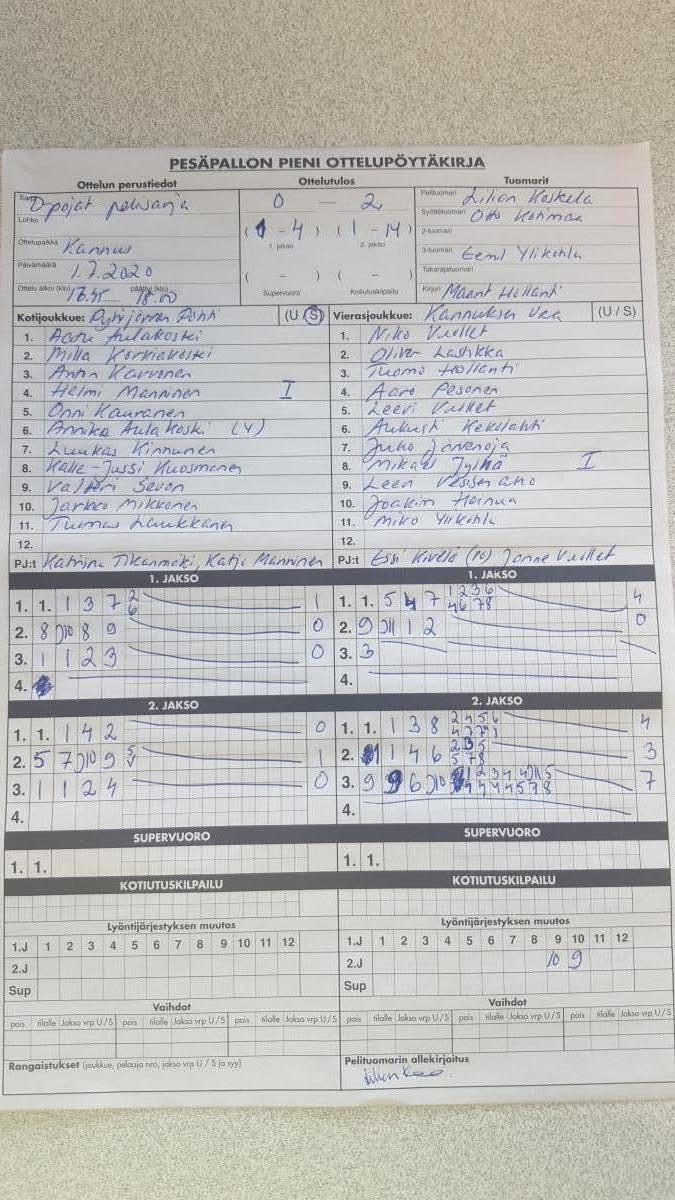 PESÄPALLON PIENI OTTELUPÖYTÄKIRJA
Ottelun perustiedot Ottelutulos Tuomarit
Sarja D pojat pelisarja 0 — 2 Pelituomari Lilian Koskela
Lohko Syöttötuomari Otto Kotimaa
(1 - 4) (1 - 14) 2-tuomari
Ottelupaikka Kannus 1. jakso 2. jakso 3-tuomari Eemil Ylikohlu
Päivämäärä 1.7.2020 ( - ) ( - ) Takarajatuomari
Ottelu alkoi (klo) päättyi (klo) 18.00 Supervuoro Kotiutuskilpailu Kirjuri Hollanti
Kotijoukkue: Pohti (U / S) Vierasjoukkue: Kannuksen Ura (U / S)
1. Aulakoski 1. Niko Vuollet
2. Milla Korkiakoski 2. Oliver Lastikka
3. Anton Karvonen 3. Tuomo Hollanti
4. Helmi Manninen I 4. Aaro Pesonen
5. Onni Kauranen 5. Leevi Vuollet
6. Annika Aulakoski (V) 6. Aukusti Kekolahti
7. Luukas Kinnunen 7. Juho
8. Kalle-Jussi Kuosmanen 8. Mikael Jylhä I
9. Valtteri Sevon 9.
10. Jarkko Mikkonen 10. Joakim
11. Tuomas Laukkanen 11. Miko Ylikohlu
12. 12.
PJ:t Katriina Tikanmäki, Katja Manninen PJ:t Essi Kivelä (10) Janne Vuollet
1. JAKSO 1. JAKSO
1. 1. 1 3 7 2 6 1 1. 1. 5 4 7 1 2 3 6 4 6 7 8 4
2. 8 )10 8 9 0 2. 9 )11 1 2 0
3. 1 1 2 3 0 3. 3
4. 4.
2. JAKSO 2. JAKSO
1. 1. 1 4 2 0 1. 1. 1 3 8 2 4 5 6 4
2. 5 7 )10 9 5 1 2. 1 4 6 5 7 8 3
3. 1 1 2 4 0 3. 9 9 6 )10 7
4. 4.
SUPERVUORO SUPERVUORO
1. 1. 1. 1.
KOTIUTUSKILPAILU KOTIUTUSKILPAILU
Lyöntijärjestyksen muutos Lyöntijärjestyksen muutos
1.J 1 2 3 4 5 6 7 8 9 10 11 12 1.J 1 2 3 4 5 6 7 8 9 10 11 12
2.J 2.J 10 9
Sup Sup
Vaihdot Vaihdot
pois tilalle Jakso vrp U / S pois tilalle Jakso vrp U / S pois tilalle Jakso vrp U / S pois tilalle Jakso vrp U / S pois tilalle Jakso vrp U / S pois tilalle Jakso vrp U / S
Rangaistukset (joukkue, pelaaja nro, jakso vrp U / S ja syy) Pelituomarin allekirjoitus